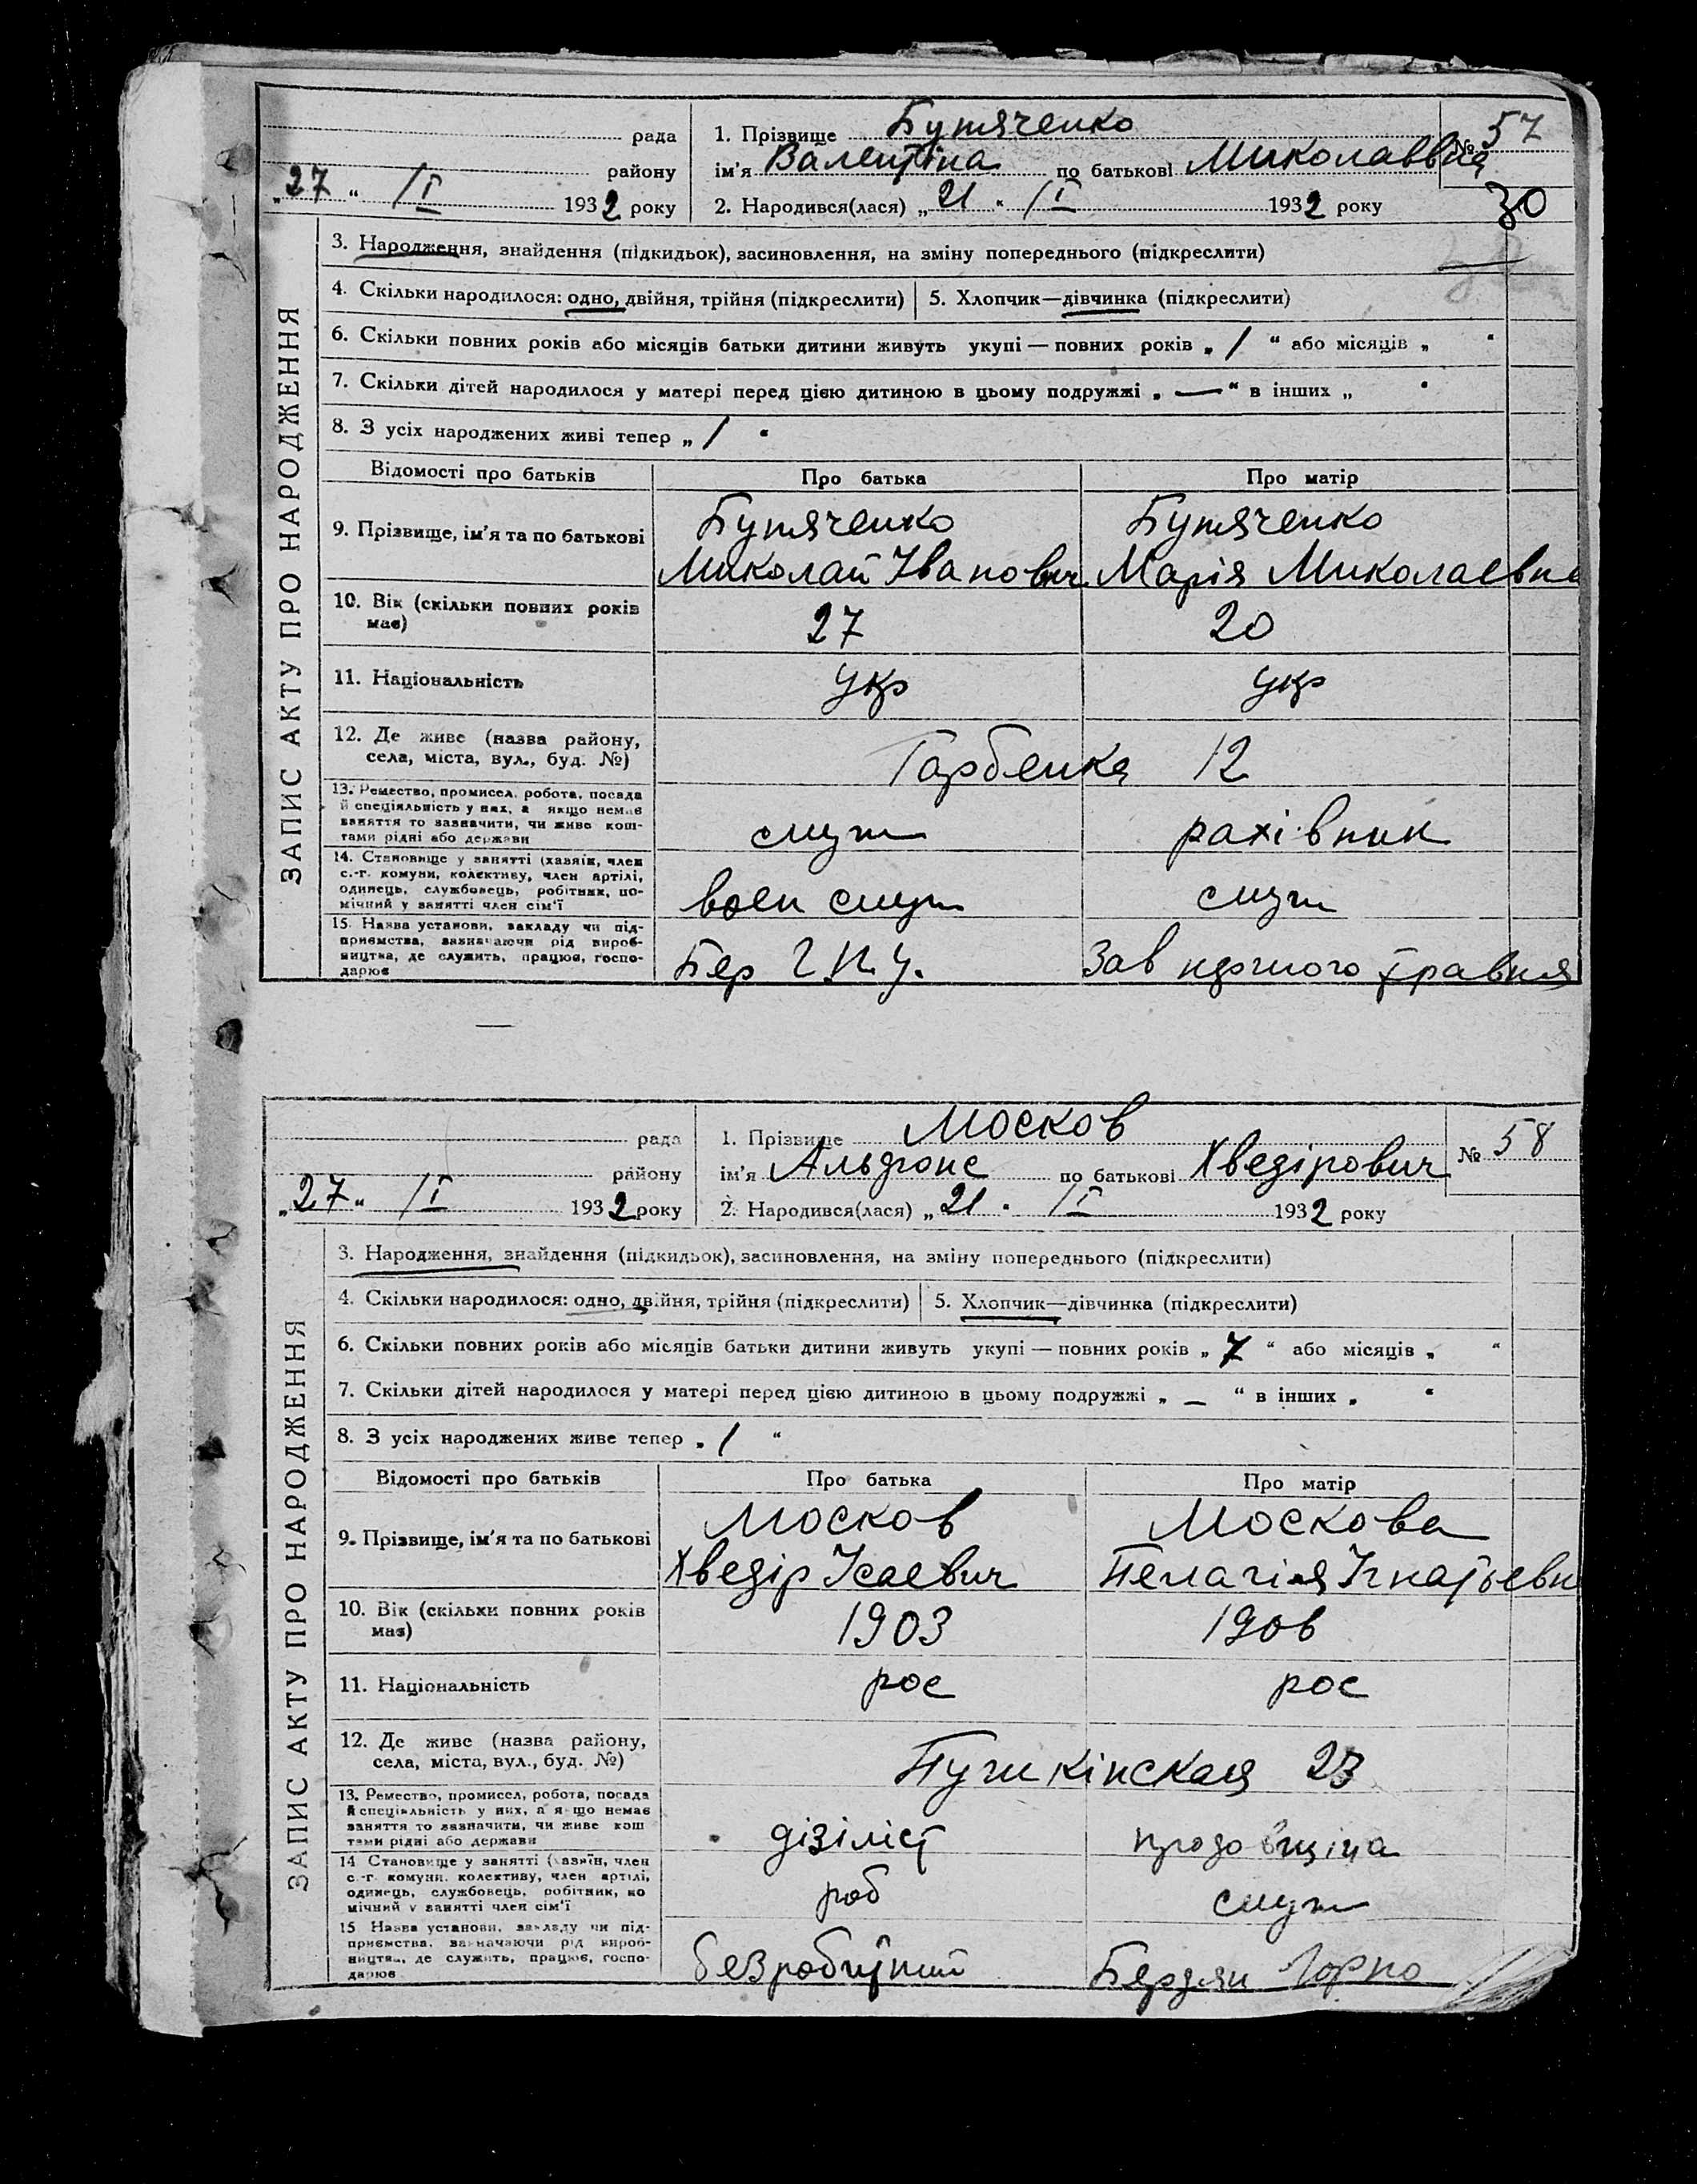 ЗАПИС АКТУ ПРО НАРОДЖЕННЯ
рада
району
„27“ /I 1932 року
1. Прізвище Бутяченко
ім'я Валентіна по батькові Миколаввна
2. Народився(лася) „21“ /I 1932 року
№ 57
30
3. Народження, знайдення (підкидьок), засиновлення, на зміну попереднього (підкреслити)
4. Скільки народилося: одно, двійня, трійня (підкреслити) 5. Хлопчик—дівчинка (підкреслити)
6. Скільки повних років або місяців батьки дитини живуть укупі — повних років „ / “ або місяців „ “
7. Скільки дітей народилося у матері перед цією дитиною в цьому подружжі „ — “ в інших „ “
8. З усіх народжених живі тепер „ / “
Відомості про батьків Про батька Про матір
9. Прізвище, ім'я та по батькові Бутяченко Бутяченко
Миколай Іванович Марія Миколаевна
10. Вік (скільки повних років має) 27 20
11. Національність укр укр
12. Де живе (назва району, села, міста, вул., буд. №) Горбенка 12
13. Ремество, промисел, робота, посада й спеціяльність у них, а якщо немає заняття то зазначити, чи живе коштами рідні або держави служ рахівник
14. Становище у занятті (хазяїн, член с.-г. комуни, колективу, член артілі, одинець, службовець, робітник, помічний у занятті член сім'ї воен служ служ
15. Назва установи, закладу чи підприємства, зазначаючи рід виробництва, де служить, працює, господарює Бер Г.П.У. Зав першого травня
ЗАПИС АКТУ ПРО НАРОДЖЕННЯ
рада
району
„27“ /I 1932 року
1. Прізвище Москов
ім'я Альфонс по батькові Хведірович
2. Народився(лася) „21“ /I 1932 року
№ 58
3. Народження, знайдення (підкидьок), засиновлення, на зміну попереднього (підкреслити)
4. Скільки народилося: одно, двійня, трійня (підкреслити) 5. Хлопчик—дівчинка (підкреслити)
6. Скільки повних років або місяців батьки дитини живуть укупі — повних років „ 7 “ або місяців „ “
7. Скільки дітей народилося у матері перед цією дитиною в цьому подружжі „ — “ в інших „ “
8. З усіх народжених живе тепер „ / “
Відомості про батьків Про батька Про матір
9. Прізвище, ім'я та по батькові Москов Москова
Хведір Ісаевич Пелагія Ігнатьевн
10. Вік (скільки повних років має) 1903 1906
11. Національність рос рос
12. Де живе (назва району, села, міста, вул., буд. №) Пушкінская 23
13. Ремество, промисел, робота, посада й спеціяльність у них, а якщо немає заняття то зазначити, чи живе коштами рідні або держави дізіліст продовщіца
14. Становище у занятті (хазяїн, член с.-г. комуни, колективу, член артілі, одинець, службовець, робітник, помічний у занятті член сім'ї роб служ
15. Назва установи, закладу чи підприємства, зазначаючи рід виробництва, де служить, працює, господарює безробітний Бердян Горпо